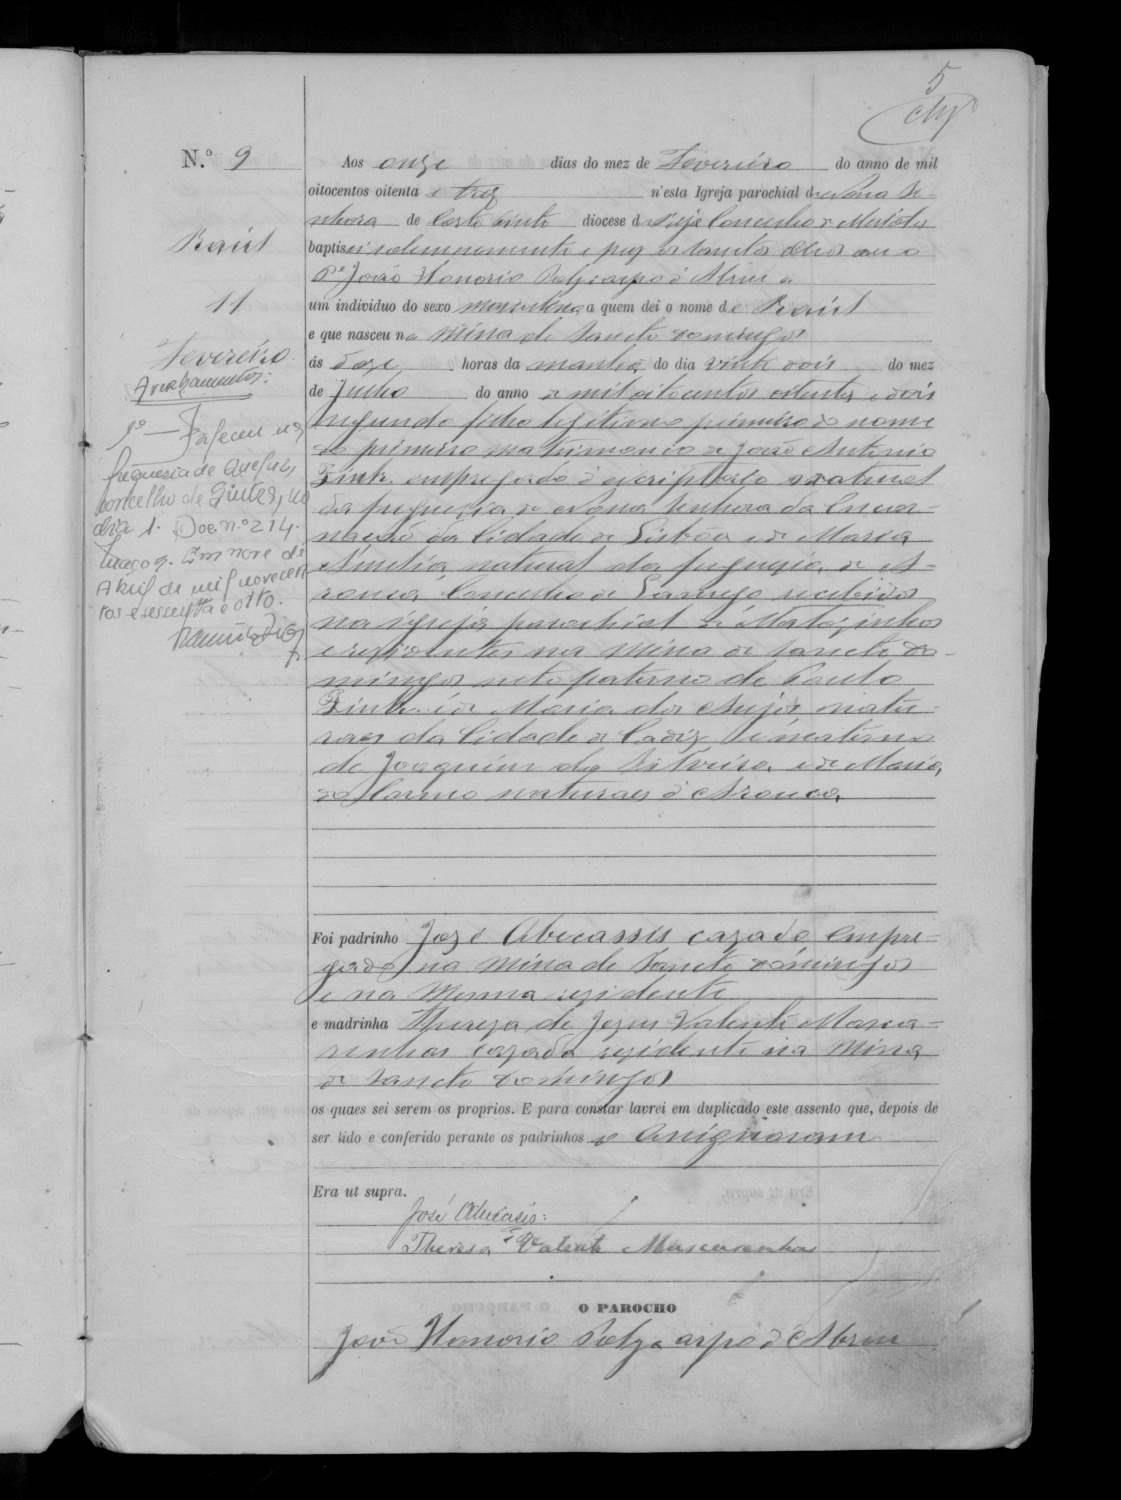 5
N.º 9
Raúl
11
Fevereiro
Averbamentos:
1º — Faleceu na
freguesia de Queluz,
concelho de Sintra, no
dia 1. Doc. nº 214.
Maço 9. Em nove de
Abril de mil novecen
tos e sessenta e oito.
Aos onze dias do mez de Fevereiro do anno de mil
oitocentos oitenta e trez n'esta Igreja parochial de Nossa Se-
nhora de Corte Pinto diocese de Beja Concelho de Mertola
baptisei solemnemente e puz os Sanctos Oleos eu o
Pe João Honorio Polycarpo d'Abreu a
um individuo do sexo masculino a quem dei o nome de Raúl
e que nasceu na Mina de Sancto Domingos
ás doze horas da manhã do dia vinte dois do mez
de Junho do anno de mil oitocentos oitenta e dois
segundo filho legitimo primeiro do nome
do primeiro matrimonio de João Antonio
empregado d'escriptorio natural
da freguezia de Nossa Senhora da Encar-
nação da Cidade de Lisboa e de Maria
Amelia natural da freguezia de A-
rouca Concelho de Lamego recebidos
na igreja parochial de Matozinhos
e rezidentes na Mina de Sancto Do-
mingos neto paterno de Paulo
e de Maria dos Anjos natu-
raes da Cidade de Cadiz e materno
de Joaquim da Silveira e de Maria
do Carmo naturaes d'Arouca.
Foi padrinho José Abecassis cazado empre-
gado na Mina de Sancto Domingos
e na mesma rezidente
e madrinha Thereza de Jezus Valente Masca-
renhas cazada rezidente na Mina
de Sancto Domingos
os quaes sei serem os proprios. E para constar lavrei em duplicado este assento que, depois de
ser lido e conferido perante os padrinhos assignaram
Era ut supra.
José Abecasis:
Theresa Valente Mascarenhas
O PAROCHO
João Honorio Polycarpo d'Abreu